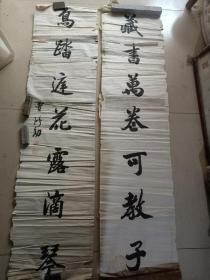 藏書萬卷可教子
鳥踏庭花露滴琴